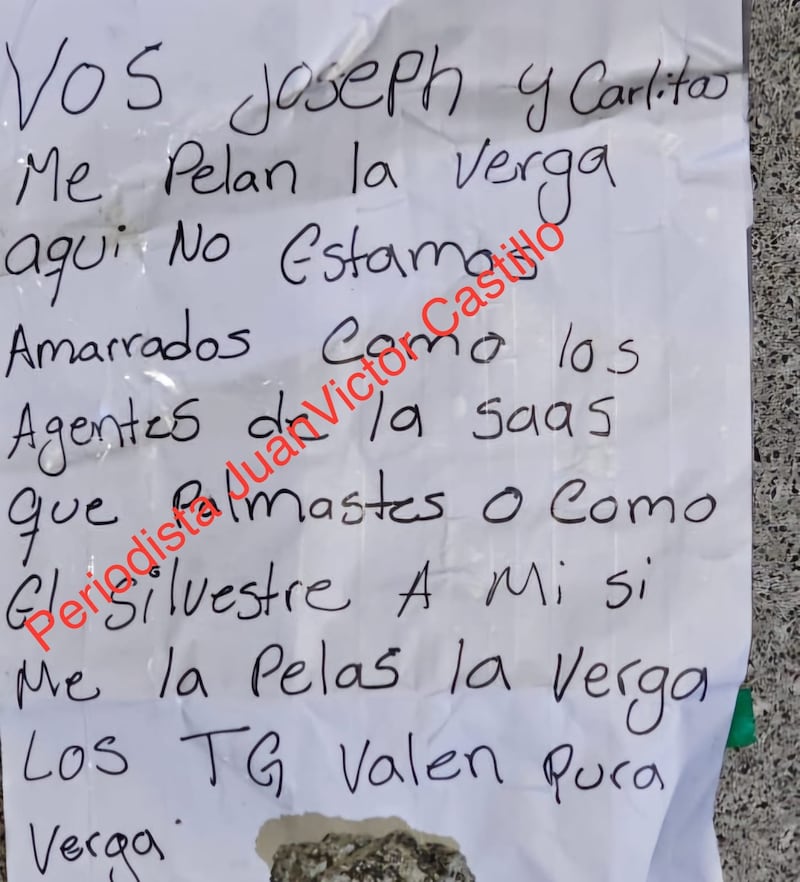 Vos Joseph y Carlitos
Me Pelan la Verga
aqui No Estamos
Amarrados Como los
Agentes de la saas
que Palmastes o Como
El Silvestre A Mi si
Me la Pelas la Verga
Los TG Valen pura
Verga
Periodista JuanVictor Castillo